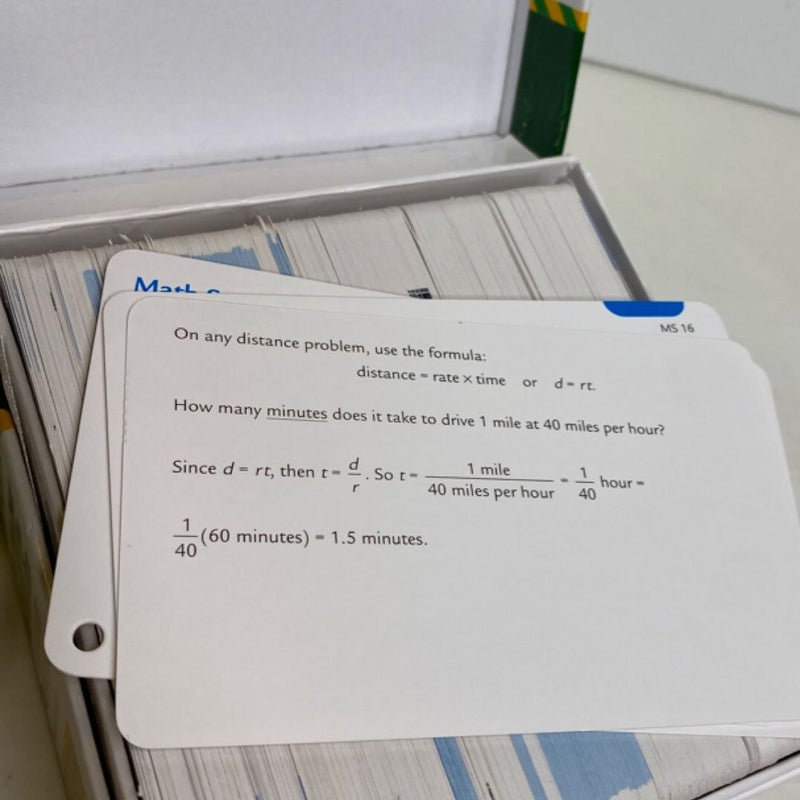 Math
MS 16
On any distance problem, use the formula:
distance = rate × time or d = rt.
How many minutes does it take to drive 1 mile at 40 miles per hour?
Since d = rt, then t = d/r. So t = 1 mile/40 miles per hour = 1/40 hour =
1/40(60 minutes) = 1.5 minutes.